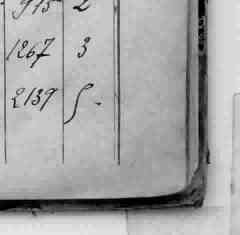 915 2
1267 3
2139 5.